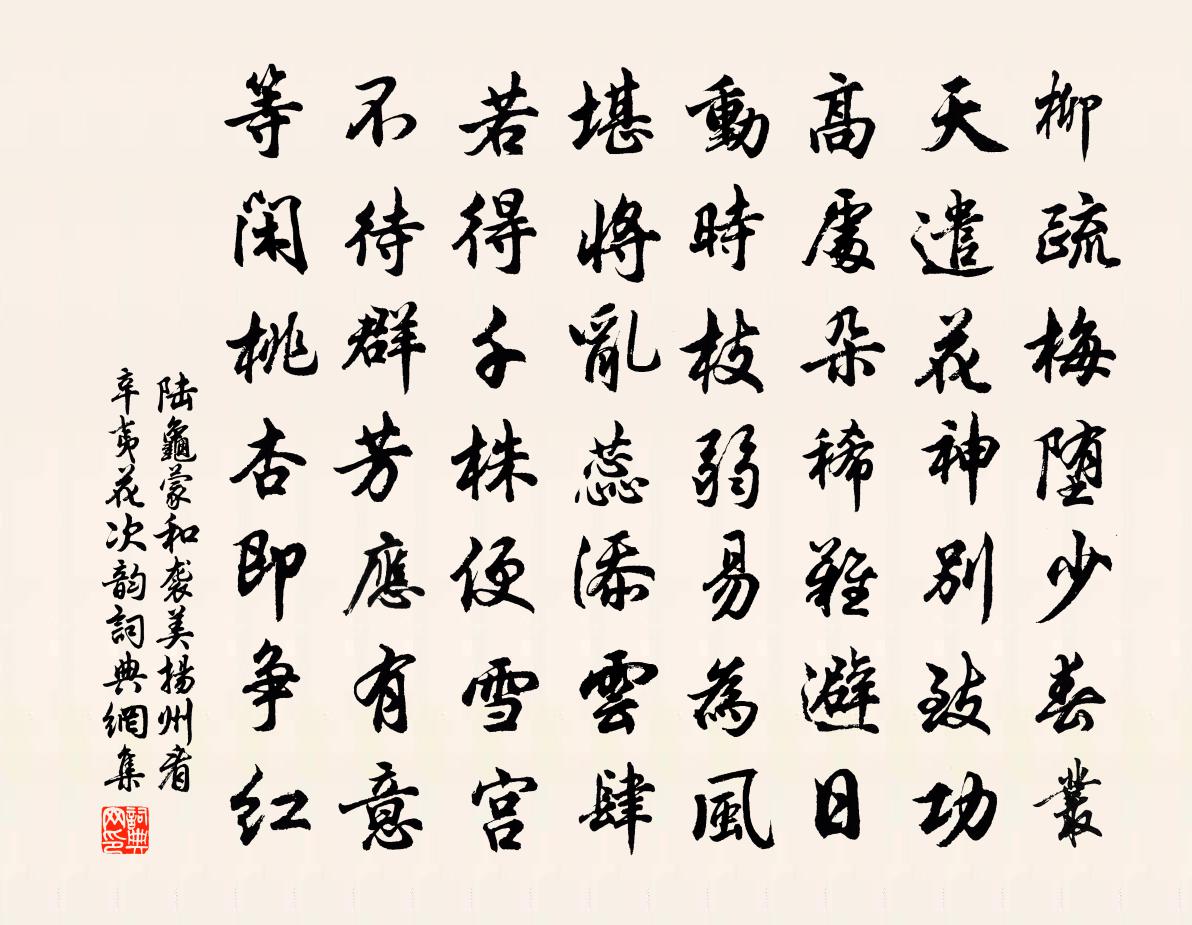 柳疏梅堕少春叢
天遣花神別致功
高處朵稀難避日
動時枝弱易為風
堪將亂蕊添雲肆
若得千株便雪宮
不待群芳應有意
等閑桃杏即爭紅
陸龜蒙和袭美揚州看
辛夷花次韵詞典網集
詞典网印